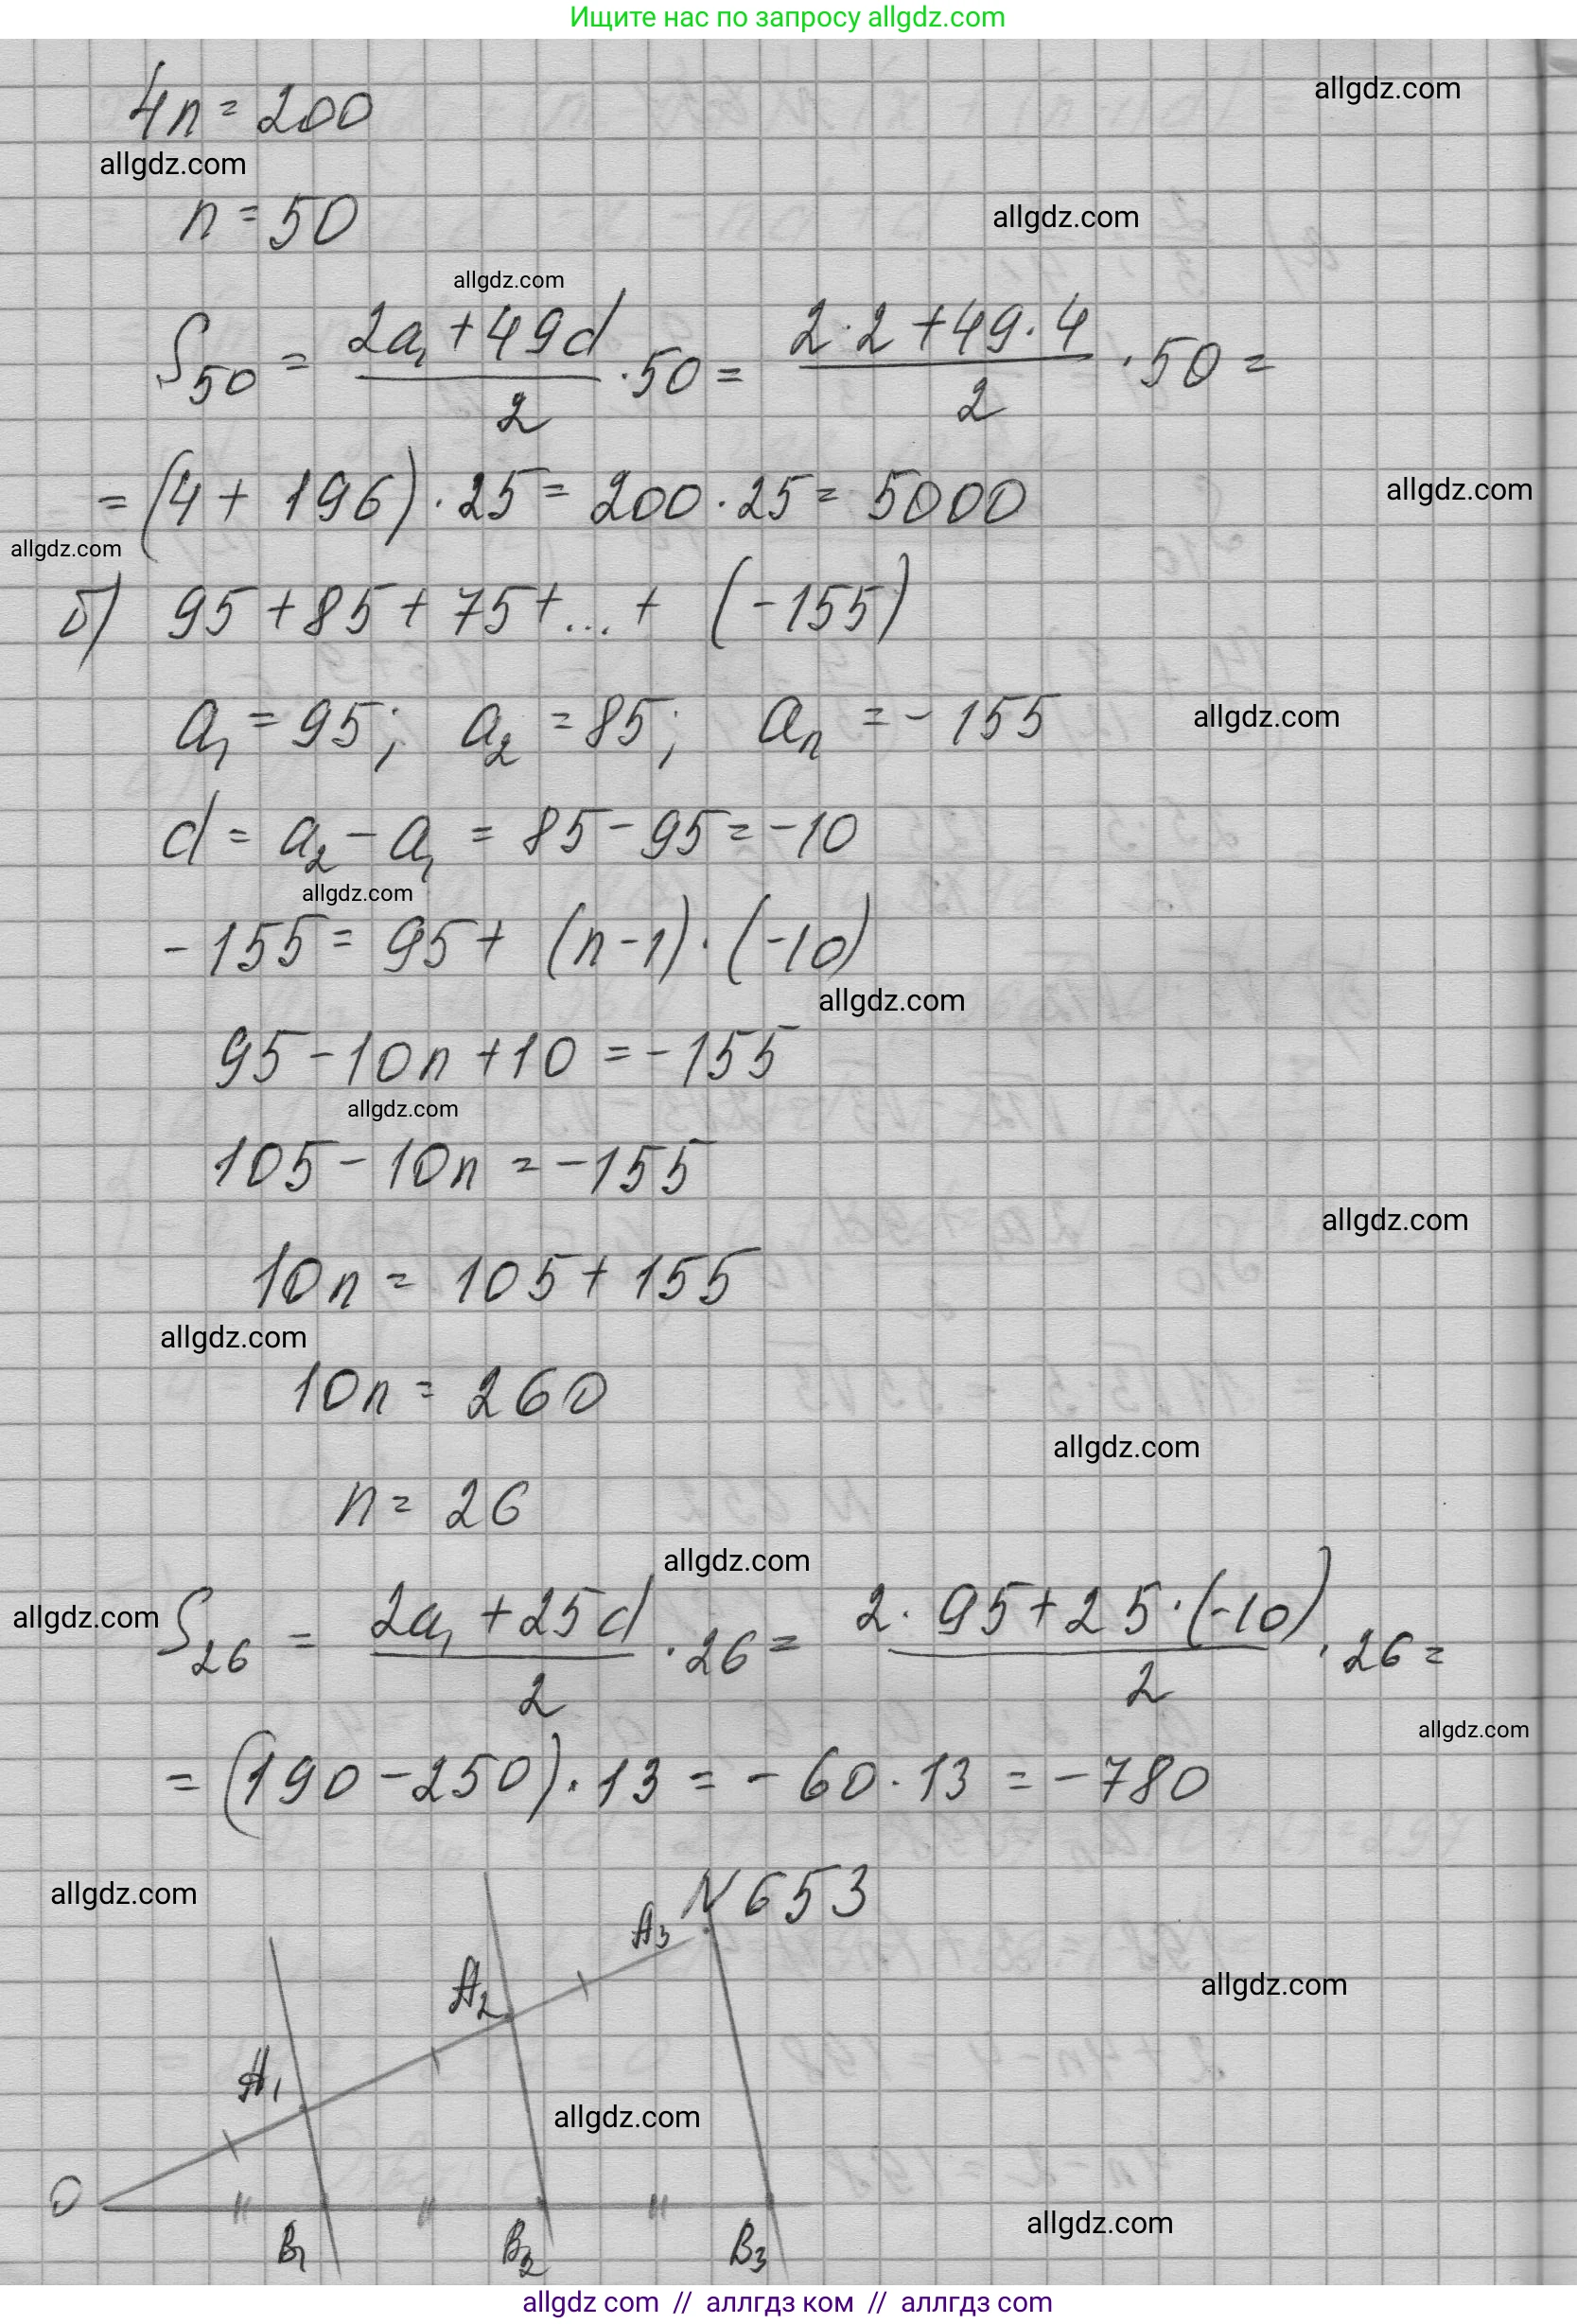 Ищите нас по запросу allgdz.com
4n = 200
allgdz.com
allgdz.com
n = 50
allgdz.com
allgdz.com
S₅₀ = (2a₁ + 49d)/2 · 50 = (2·2 + 49·4)/2 · 50 =
= (4 + 196) · 25 = 200 · 25 = 5000
allgdz.com
allgdz.com
б) 95 + 85 + 75 + ... + (-155)
a₁ = 95; a₂ = 85; aₙ = -155
allgdz.com
d = a₂ - a₁ = 85 - 95 = -10
allgdz.com
-155 = 95 + (n-1) · (-10)
allgdz.com
95 - 10n + 10 = -155
allgdz.com
105 - 10n = -155
allgdz.com
10n = 105 + 155
allgdz.com
10n = 260
allgdz.com
n = 26
allgdz.com
allgdz.com
S₂₆ = (2a₁ + 25d)/2 · 26 = (2·95 + 25·(-10))/2 · 26 =
allgdz.com
= (190 - 250) · 13 = -60 · 13 = -780
allgdz.com
N 653
A₃
A₂
allgdz.com
A₁
allgdz.com
O
B₁ B₂ B₃
allgdz.com
allgdz com // аллгдз ком // аллгдз com